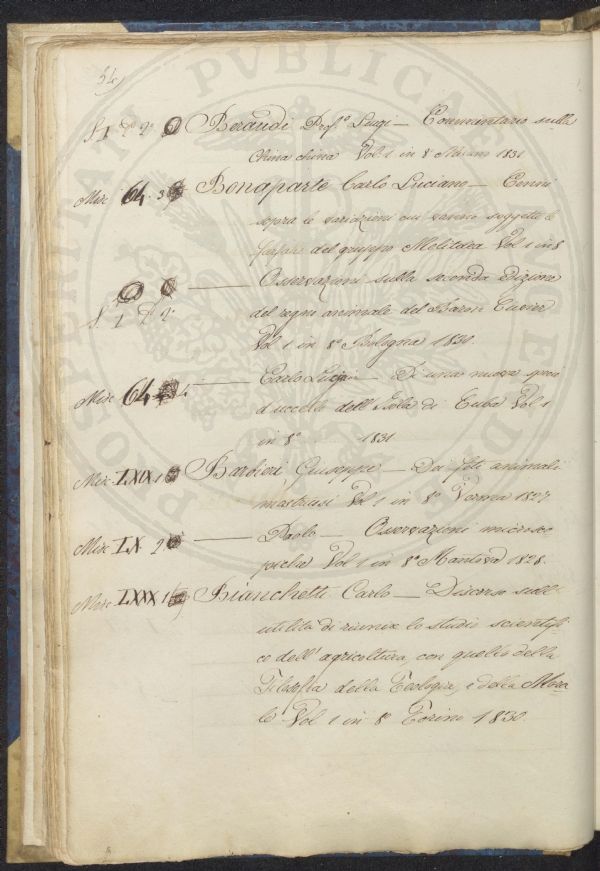 54
S 1 Beraudi Prof.º Luigi — Commentario sulla
China china Vol. 1 in 8º Milano 1831
Misc 64. 3 Bonaparte Carlo Luciano — Cenni
sopra le variazioni cui vanno soggette le
farfalle del gruppo Melitaea Vol 1 in 8
——— Osservazioni sulla seconda edizione
S. 1 del regno animale del Baron Cuvier
Vol 1 in 8º Bologna 1830.
Misc 64 4 ——— Carlo Lucian — Di una nuova specie
d'uccello dell'Isola di Cuba Vol 1
in 8º 1831
Misc LXIX 1 Barbieri Giuseppe — Dei feti animali
mostruosi Vol 1 in 8º Verona 1827
Misc LX 2 ——— Paolo — Osservazioni microsco
piche Vol 1 in 8º Mantova 1828.
Misc LXXX Bianchetti Carlo — Discorso sull'
utilità di riunire lo studio scientifi
co dell'agricoltura, con quello della
Filosofia della Teologia, e della Mora
le Vol 1 in 8º Torino 1830.
PUBLICA